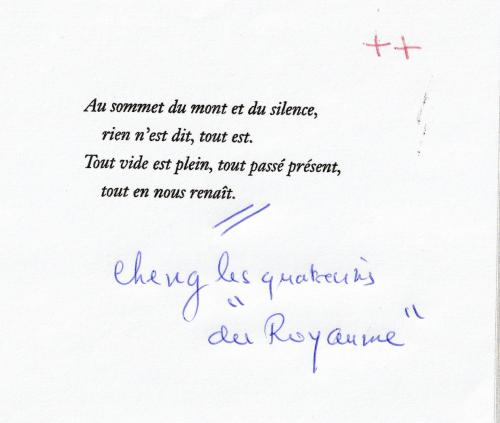 ++
Au sommet du mont et du silence,
rien n'est dit, tout est.
Tout vide est plein, tout passé présent,
tout en nous renaît.
Cheng les quatrains
"du Royaume"